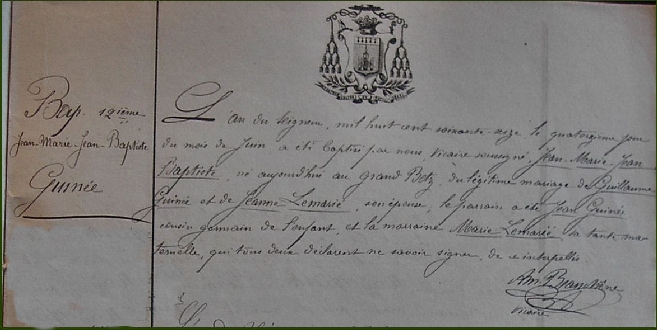 Bap. 12ième
Jean-Marie-Jean Baptiste
Guinée
L'an du Seigneur, mil huit cent soixante-seize le quatorzième jour
du mois de Juin a été baptisé par nous, Vicaire soussigné, Jean-Marie-Jean
Baptiste, né aujourd'hui au grand Betz, du légitime mariage de Guillaume
Guinée et de Jeanne Lemarié, son épouse, le parrain a été Jean Guinée
cousin germain de l'enfant, et la marraine Marie Lemarié sa tante ma-
ternelle, qui tous deux déclarent ne savoir signer, de ce interpellés